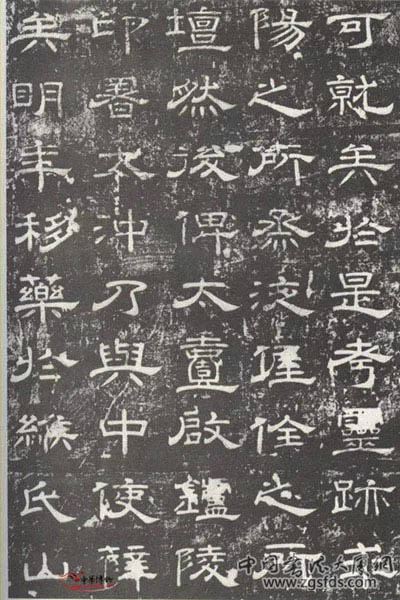 可就矣於是考靈跡
陽之所烝液偓佺之
壇然後俾太壹啟鑪陵
印署太沖乃與中使薛
矣明年移藥於緱氏山
中华博物
中国书法大师网
www.zgsfds.com